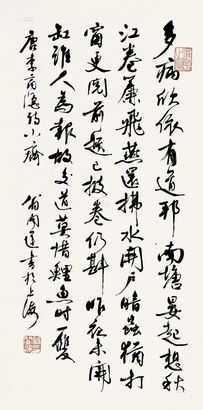 多病欣依有道邦南塘晏起想秋
江卷簾飛燕還拂水開戶暗蟲猶打
窗更閱前題已披卷仍斟昨夜未開
缸誰人為報故交道莫惜鯉魚時一雙
唐李商隱詩水齋
翁闓運書於上海